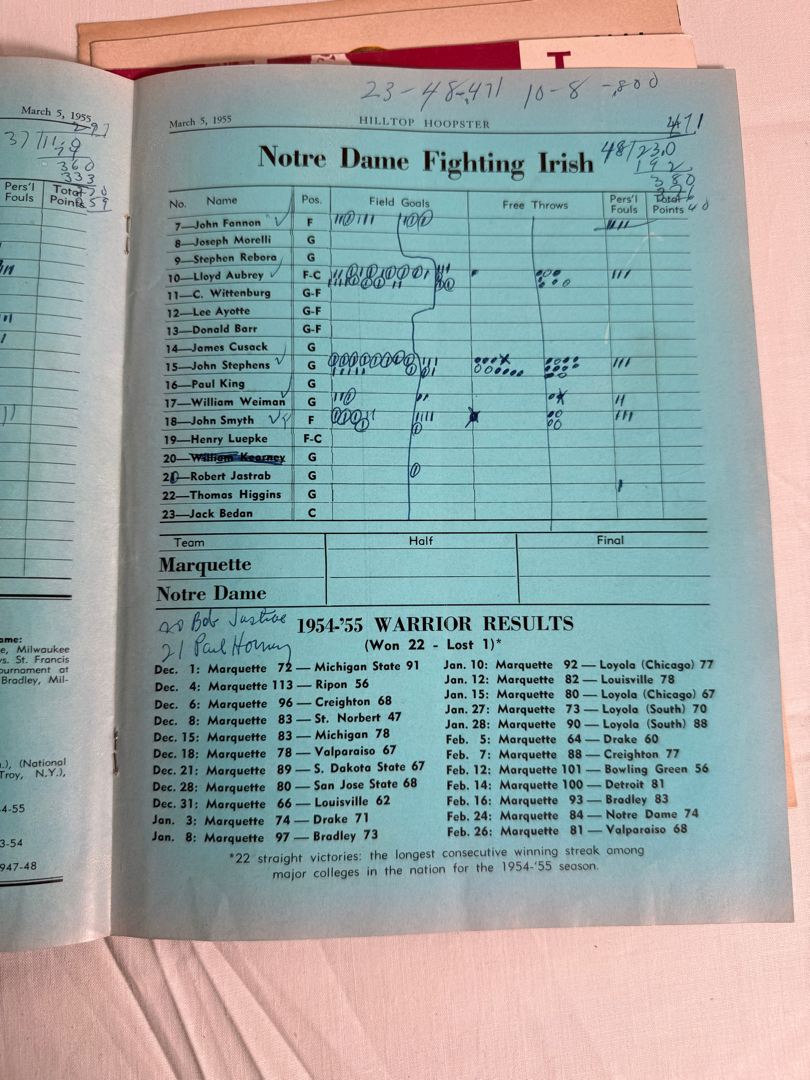 March 5, 1955
Pers'l
Fouls
Total
Points
ame:
e, Milwaukee
vs. St. Francis
ournament at
Bradley, Mil-
.), (National
Troy, N.Y.),
4-55
3-54
947-48
23-48-.471 10-8-.800
March 5, 1955 HILLTOP HOOPSTER
Notre Dame Fighting Irish
No. Name Pos. Field Goals Free Throws Pers'l Fouls Total Points
7—John Fannon F
8—Joseph Morelli G
9—Stephen Rebora G
10—Lloyd Aubrey F-C
11—C. Wittenburg G-F
12—Lee Ayotte G-F
13—Donald Barr G-F
14—James Cusack G
15—John Stephens G
16—Paul King G
17—William Weiman G
18—John Smyth F
19—Henry Luepke F-C
20—William Kearney G
21—Robert Jastrab G
22—Thomas Higgins G
23—Jack Bedan C
Team Half Final
Marquette
Notre Dame
20 Bob
21 Paul Hornung
1954-'55 WARRIOR RESULTS
(Won 22 - Lost 1)*
Dec. 1: Marquette 72 — Michigan State 91
Dec. 4: Marquette 113 — Ripon 56
Dec. 6: Marquette 96 — Creighton 68
Dec. 8: Marquette 83 — St. Norbert 47
Dec. 15: Marquette 83 — Michigan 78
Dec. 18: Marquette 78 — Valparaiso 67
Dec. 21: Marquette 89 — S. Dakota State 67
Dec. 28: Marquette 80 — San Jose State 68
Dec. 31: Marquette 66 — Louisville 62
Jan. 3: Marquette 74 — Drake 71
Jan. 8: Marquette 97 — Bradley 73
Jan. 10: Marquette 92 — Loyola (Chicago) 77
Jan. 12: Marquette 82 — Louisville 78
Jan. 15: Marquette 80 — Loyola (Chicago) 67
Jan. 27: Marquette 73 — Loyola (South) 70
Jan. 28: Marquette 90 — Loyola (South) 88
Feb. 5: Marquette 64 — Drake 60
Feb. 7: Marquette 88 — Creighton 77
Feb. 12: Marquette 101 — Bowling Green 56
Feb. 14: Marquette 100 — Detroit 81
Feb. 16: Marquette 93 — Bradley 83
Feb. 24: Marquette 84 — Notre Dame 74
Feb. 26: Marquette 81 — Valparaiso 68
*22 straight victories: the longest consecutive winning streak among
major colleges in the nation for the 1954-'55 season.